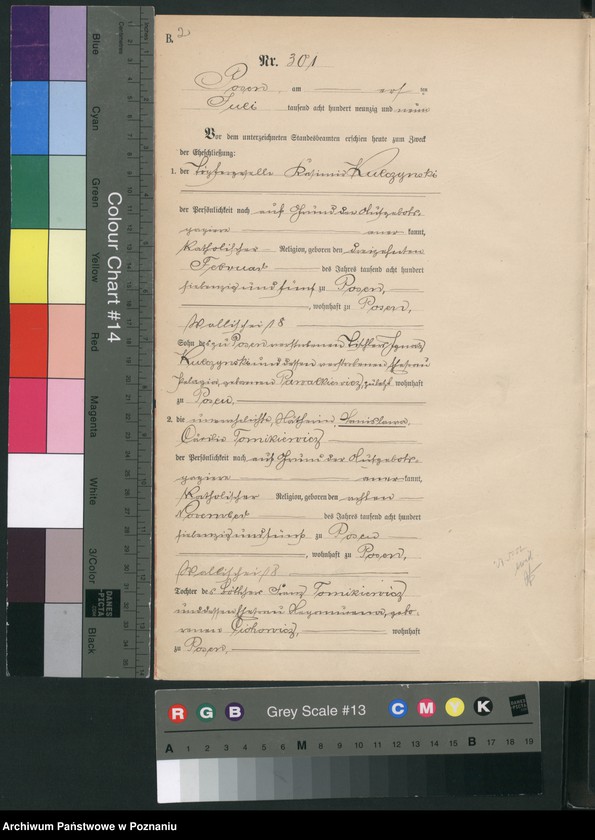 B.
2
Nr. 301
Posen, am elf ten
Juli tausend acht hundert neunzig und neun
Vor dem unterzeichneten Standesbeamten erschien heute zum Zweck
der Eheschließung:
1. der Kasimir Kulczynski
der Persönlichkeit nach auf Grund der Aufgebots-
papiere aner kannt,
katholischer Religion, geboren den dreizehnten
Februar des Jahres tausend acht hundert
siebenzig und fünf zu Posen,
, wohnhaft zu Posen,
Wallischei 8
Sohn des zu Posen verstorbenen Tischlers Ignatz
Kulczynski und dessen verstorbenen Ehefrau
Pelagia, geborenen Pawalkiewicz, zuletzt wohnhaft
zu Posen.
2. die unverehelichte Stanislawa,
Cäcilie Tomikiewicz
der Persönlichkeit nach auf Grund der Aufgebots-
papiere aner kannt,
katholischer Religion, geboren den achten
November des Jahres tausend acht hundert
siebenzig und fünf zu Posen
, wohnhaft zu Posen,
Wallischei 8
Tochter des Franz Tomikiewicz
und dessen Ehefrau gebo-
renen Cichowicz, wohnhaft
zu Posen.
Colour Chart #14
Inches
Centimetres
Blue
Cyan
Green
Yellow
Red
Magenta
White
3/Color
Black
DANES
-PICTA
R G B Grey Scale #13 C M Y K
A 1 2 3 4 5 6 M 8 9 10 11 12 13 14 15 B 17 18 19
Archiwum Państwowe w Poznaniu